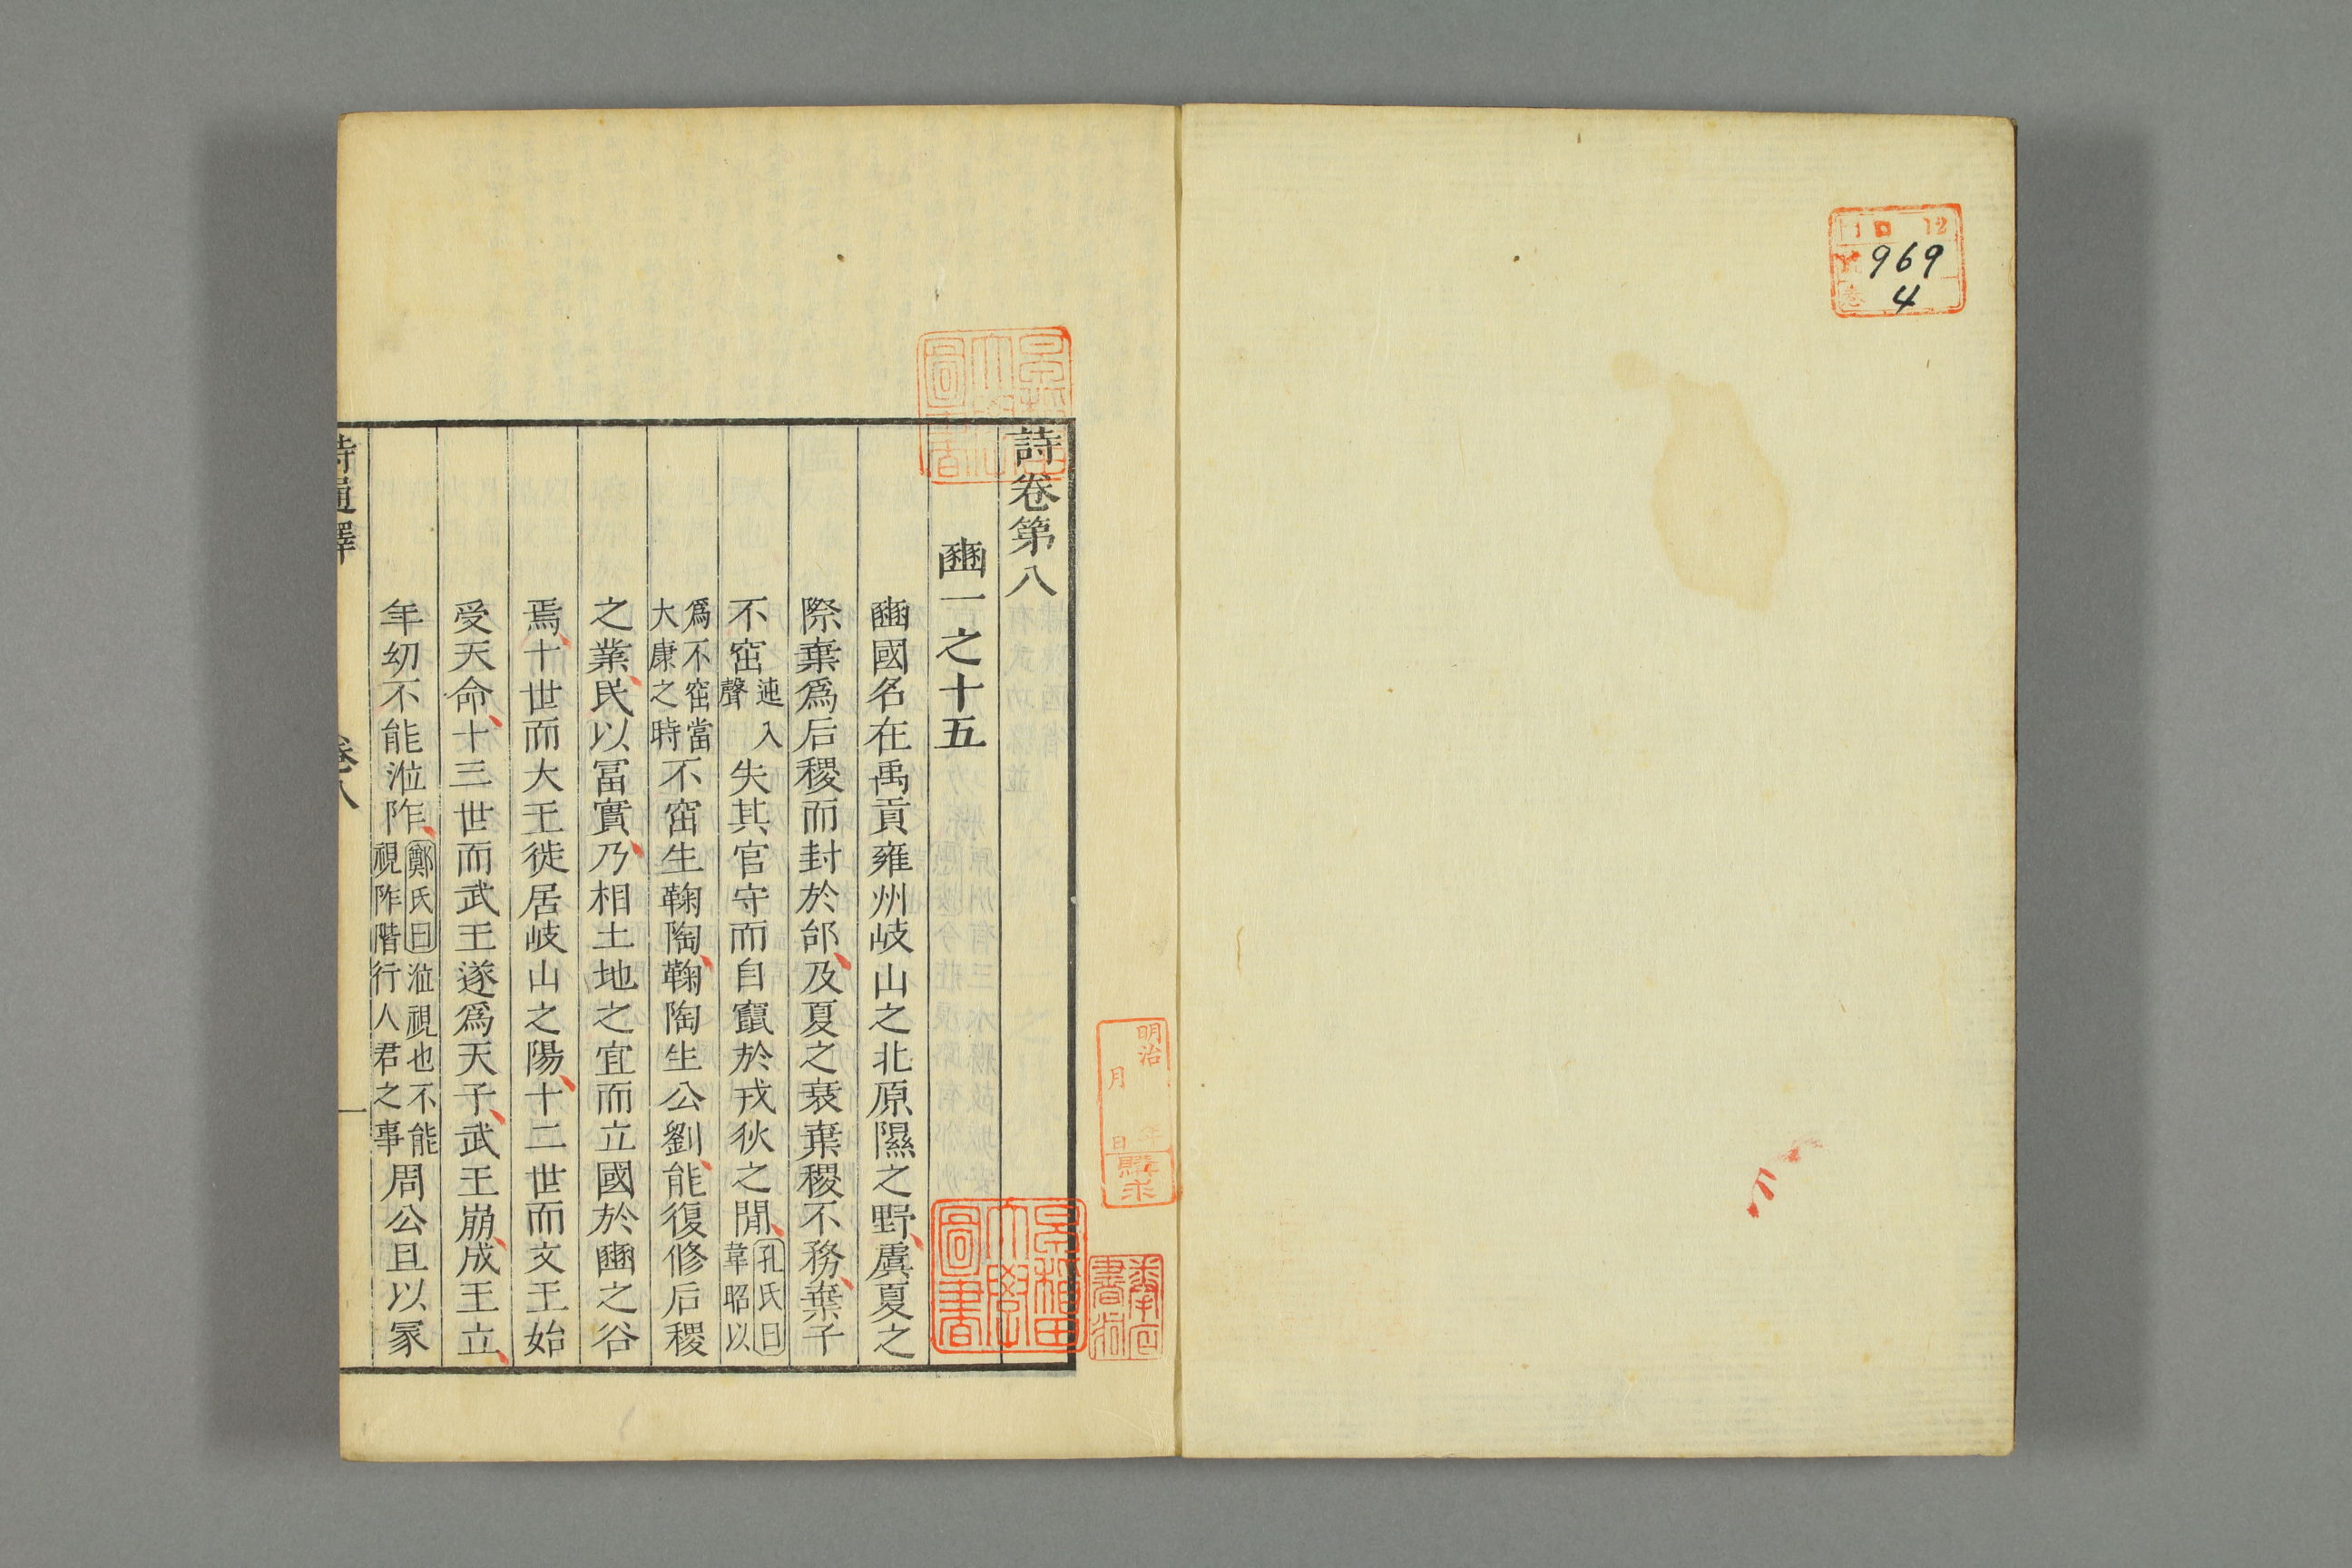 門 ロ 12
號 969
卷 4
詩卷第八
豳一之十五
豳國名在禹貢雍州岐山之北原隰之野虞夏之
際棄爲后稷而封於邰及夏之衰棄稷不務棄子
不窋連入聲失其官守而自竄於戎狄之閒孔氏曰韋昭以
爲不窋當大康之時不窋生鞠陶鞠陶生公劉能復修后稷
之業民以冨實乃相土地之宜而立國於豳之谷
焉十世而大王徙居岐山之陽十二世而文王始
受天命十三世而武王遂爲天子武王崩成王立
年幼不能涖阼鄭氏曰涖視也不能視阼階行人君之事周公旦以冢
詩通釋 卷八 一
早稻田大學圖書
早稻田大學圖書
明治 年 月 日 購求